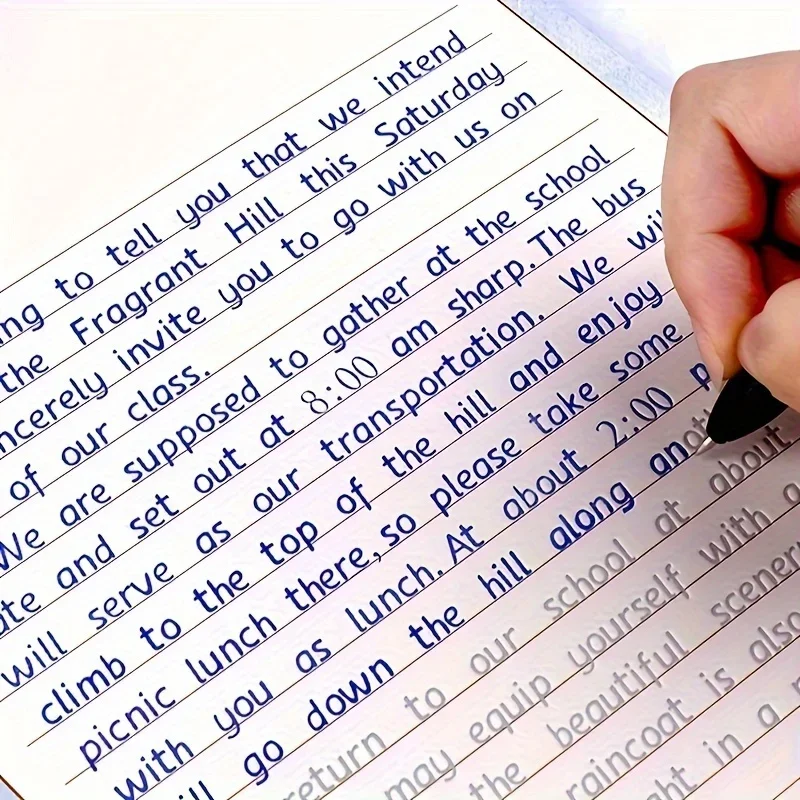 to tell you that we intend
the Fragrant Hill this Saturday
invite you to go with us on
of our class.
We are supposed to gather at the school
and set out at 8:00 am sharp. The bus
will serve as our transportation. We
climb to the top of the hill and enjoy
picnic lunch there, so please take some
with you as lunch. At about 2:00 p
go down the hill along another
to our school at about
may equip yourself with a
the beautiful scenery
raincoat is also
in a